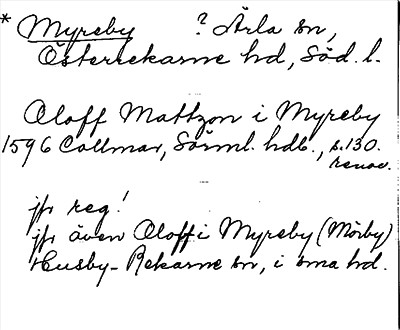 * Myreby ? Ärla sn,
Österrekarne hd, Söd. l.
Oloff Mattzon i Myreby
1596 Collmar, Sörml. hdl., s. 130.
renov.
jfr reg!
jfr även Oloff i Myreby (Mörby)
Husby-Rekarne sn, i sma hd.